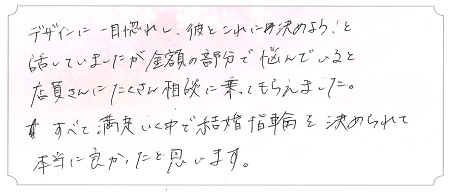 デザインに一目惚れし、彼とこれに決めよう！と
話していましたが金額の部分で悩んでいると
店員さんにたくさん相談に乗ってもらえました。
すべて満足いく中で結婚指輪を決められて
本当に良かったと思います。